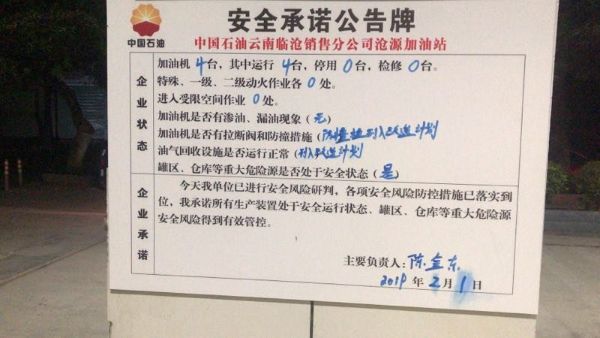 安全承诺公告牌
中国石油
中国石油云南临沧销售分公司沧源加油站
企业状态
加油机4台，其中运行4台，停用0台，检修0台。
特殊、一级、二级动火作业各0处。
进入受限空间作业0处。
加油机是否有渗油、漏油现象（无）
加油机是否有拉断阀和防撞措施（防撞栏列入改造计划
油气回收设施是否运行正常（列入改造计划
罐区、仓库等重大危险源是否处于安全状态（是）
企业承诺
今天我单位已进行安全风险研判，各项安全风险防控措施已落实到
位，我承诺所有生产装置处于安全运行状态、罐区、仓库等重大危险源
安全风险得到有效管控。
主要负责人：陈金东
2019年2月1日